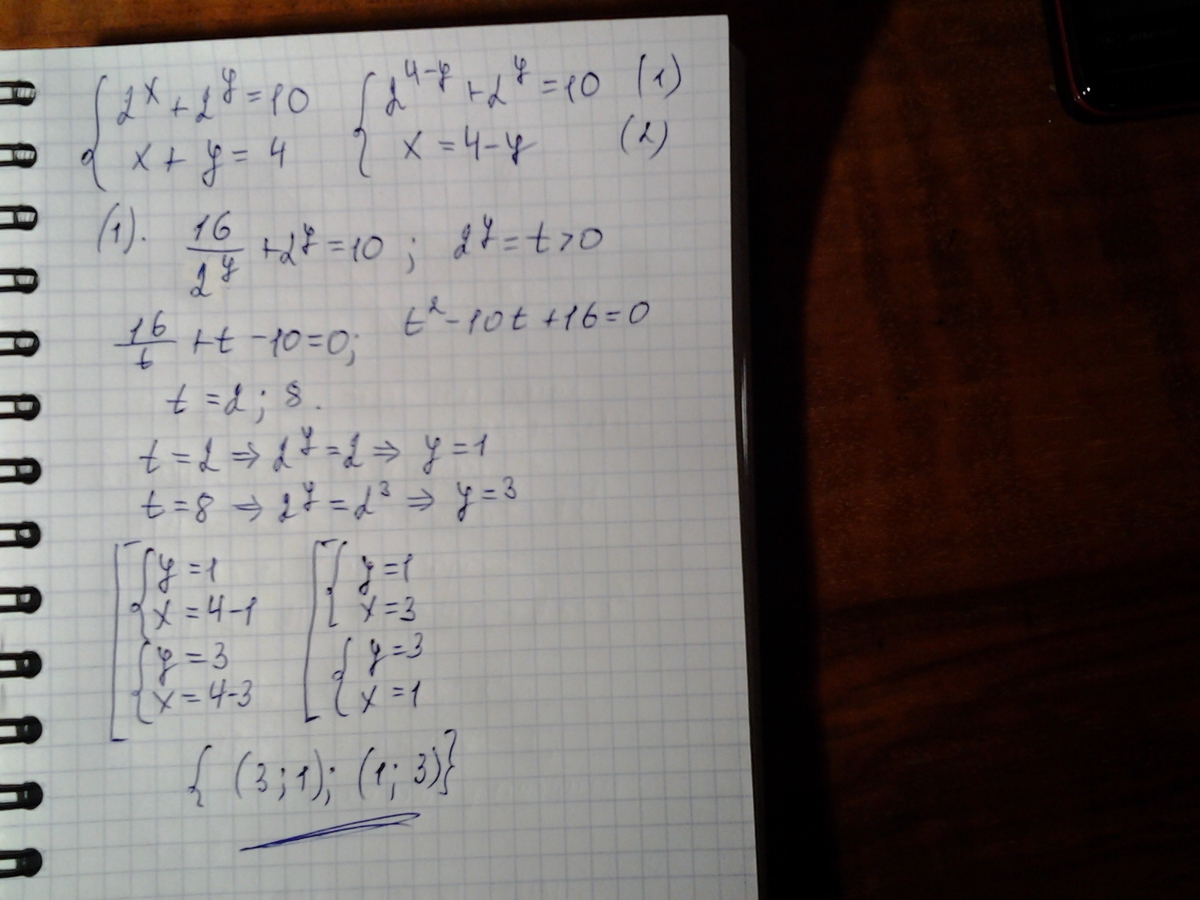 { 2^x + 2^y = 10 { 2^{4-y} + 2^y = 10 (1)
x + y = 4 x = 4-y (2)
(1). 16/2^y + 2^y = 10 ; 2^y = t > 0
16/t + t - 10 = 0; t^2 - 10t + 16 = 0
t = 2 ; 8.
t = 2 ⇒ 2^y = 2 ⇒ y = 1
t = 8 ⇒ 2^y = 2^3 ⇒ y = 3
[ { y = 1 [ { y = 1
x = 4-1 x = 3
{ y = 3 { y = 3
x = 4-3 x = 1
{ (3 ; 1); (1; 3)}